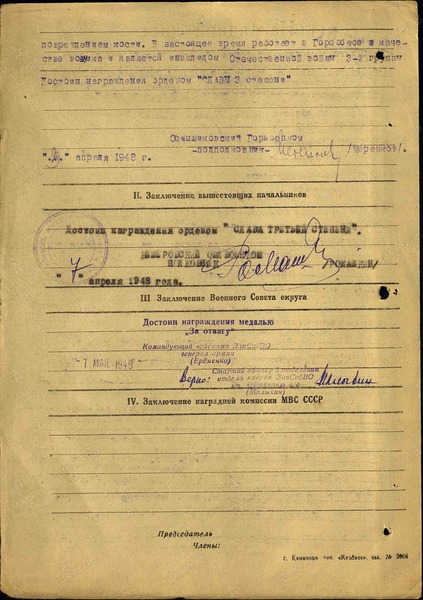 повреждением кости. В настоящее время работает в Горсобесе в каче
ство возчика и является инвалидом Отечественной войны 3-й группы
Достоин награждения орденом "СЛАВЫ 3 степени"
Осинниковский Горвоенком
-подполковник-
/Черенков/
апреля 1948 г.
II. Заключение вышестоящих начальников
Достоин награждения орденом " СЛАВА ТРЕТЬЕЙ СТЕПЕНИ".
КЕМЕРОВСКИЙ ОБЛВОЕНКОМ
ПОЛКОВНИК
/РОМАШКИН/
"7" апреля 1948 года.
III Заключение Военного Совета округа
Достоин награждения медалью
"За отвагу"
Командующий войсками ЗапСибВО
генерал армии
(Ерёменко)
7 МАЙ 1948
Старший офицер 2 отделения
Верно: отдела кадров ЗапСибВО
(Малыкин)
IV. Заключение наградной комиссии МВС СССР
Председатель
Члены:
г. Кемерово тип. «Кузбасс», зак. № 2006